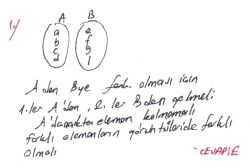 1)
A B
a e
b f
c g
d l
A dan B ye fonk. olması için
1. ler A'dan, 2. ler B den gelmeli
A'da açıkta eleman kalmamalı
farklı elemanların görüntüleride farklı
olmalı
CEVAP:E